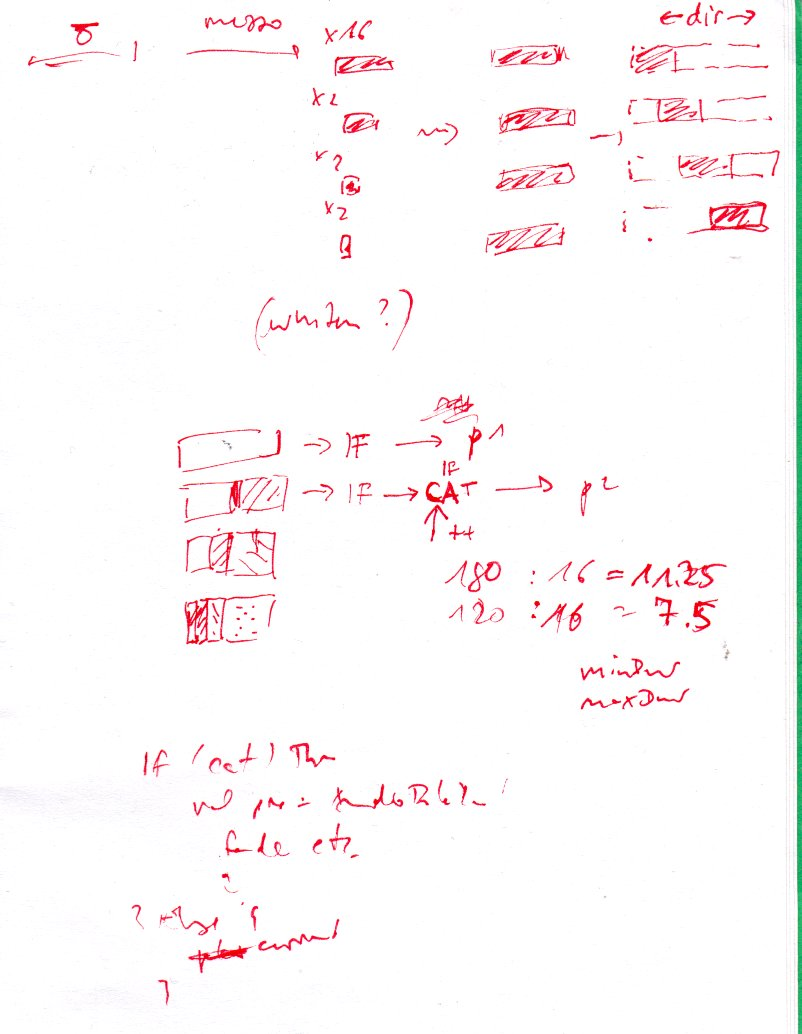 σ mezzo x16 ←dir→
x2
x2
x2
→ IF → p1
IF
→ IF → CAT → p2
↑ ++
180 : 16 = 11.25
120 : 16 = 7.5
minDur
maxDur
If (cat) Then
val pre =
fade etc.
} else {
}